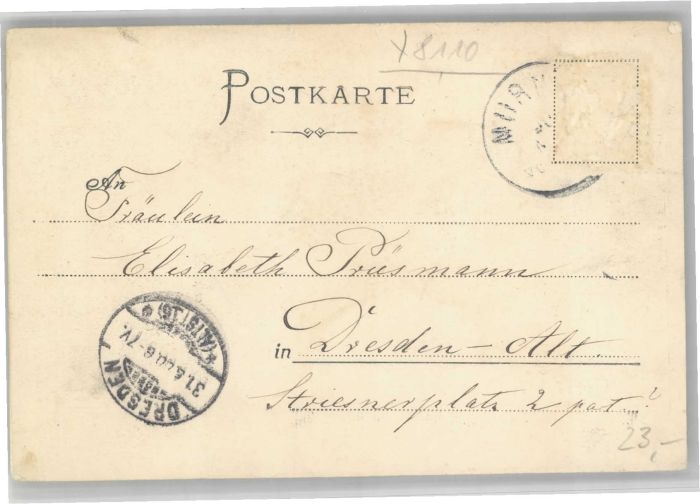 x 8,110
POSTKARTE
MURN
An
Fräulein
Elisabeth Prüsmann
in Dresden-Alt.
Striesnerplatz 2 pat.
DRESDEN
(ALTST.16)
23,-